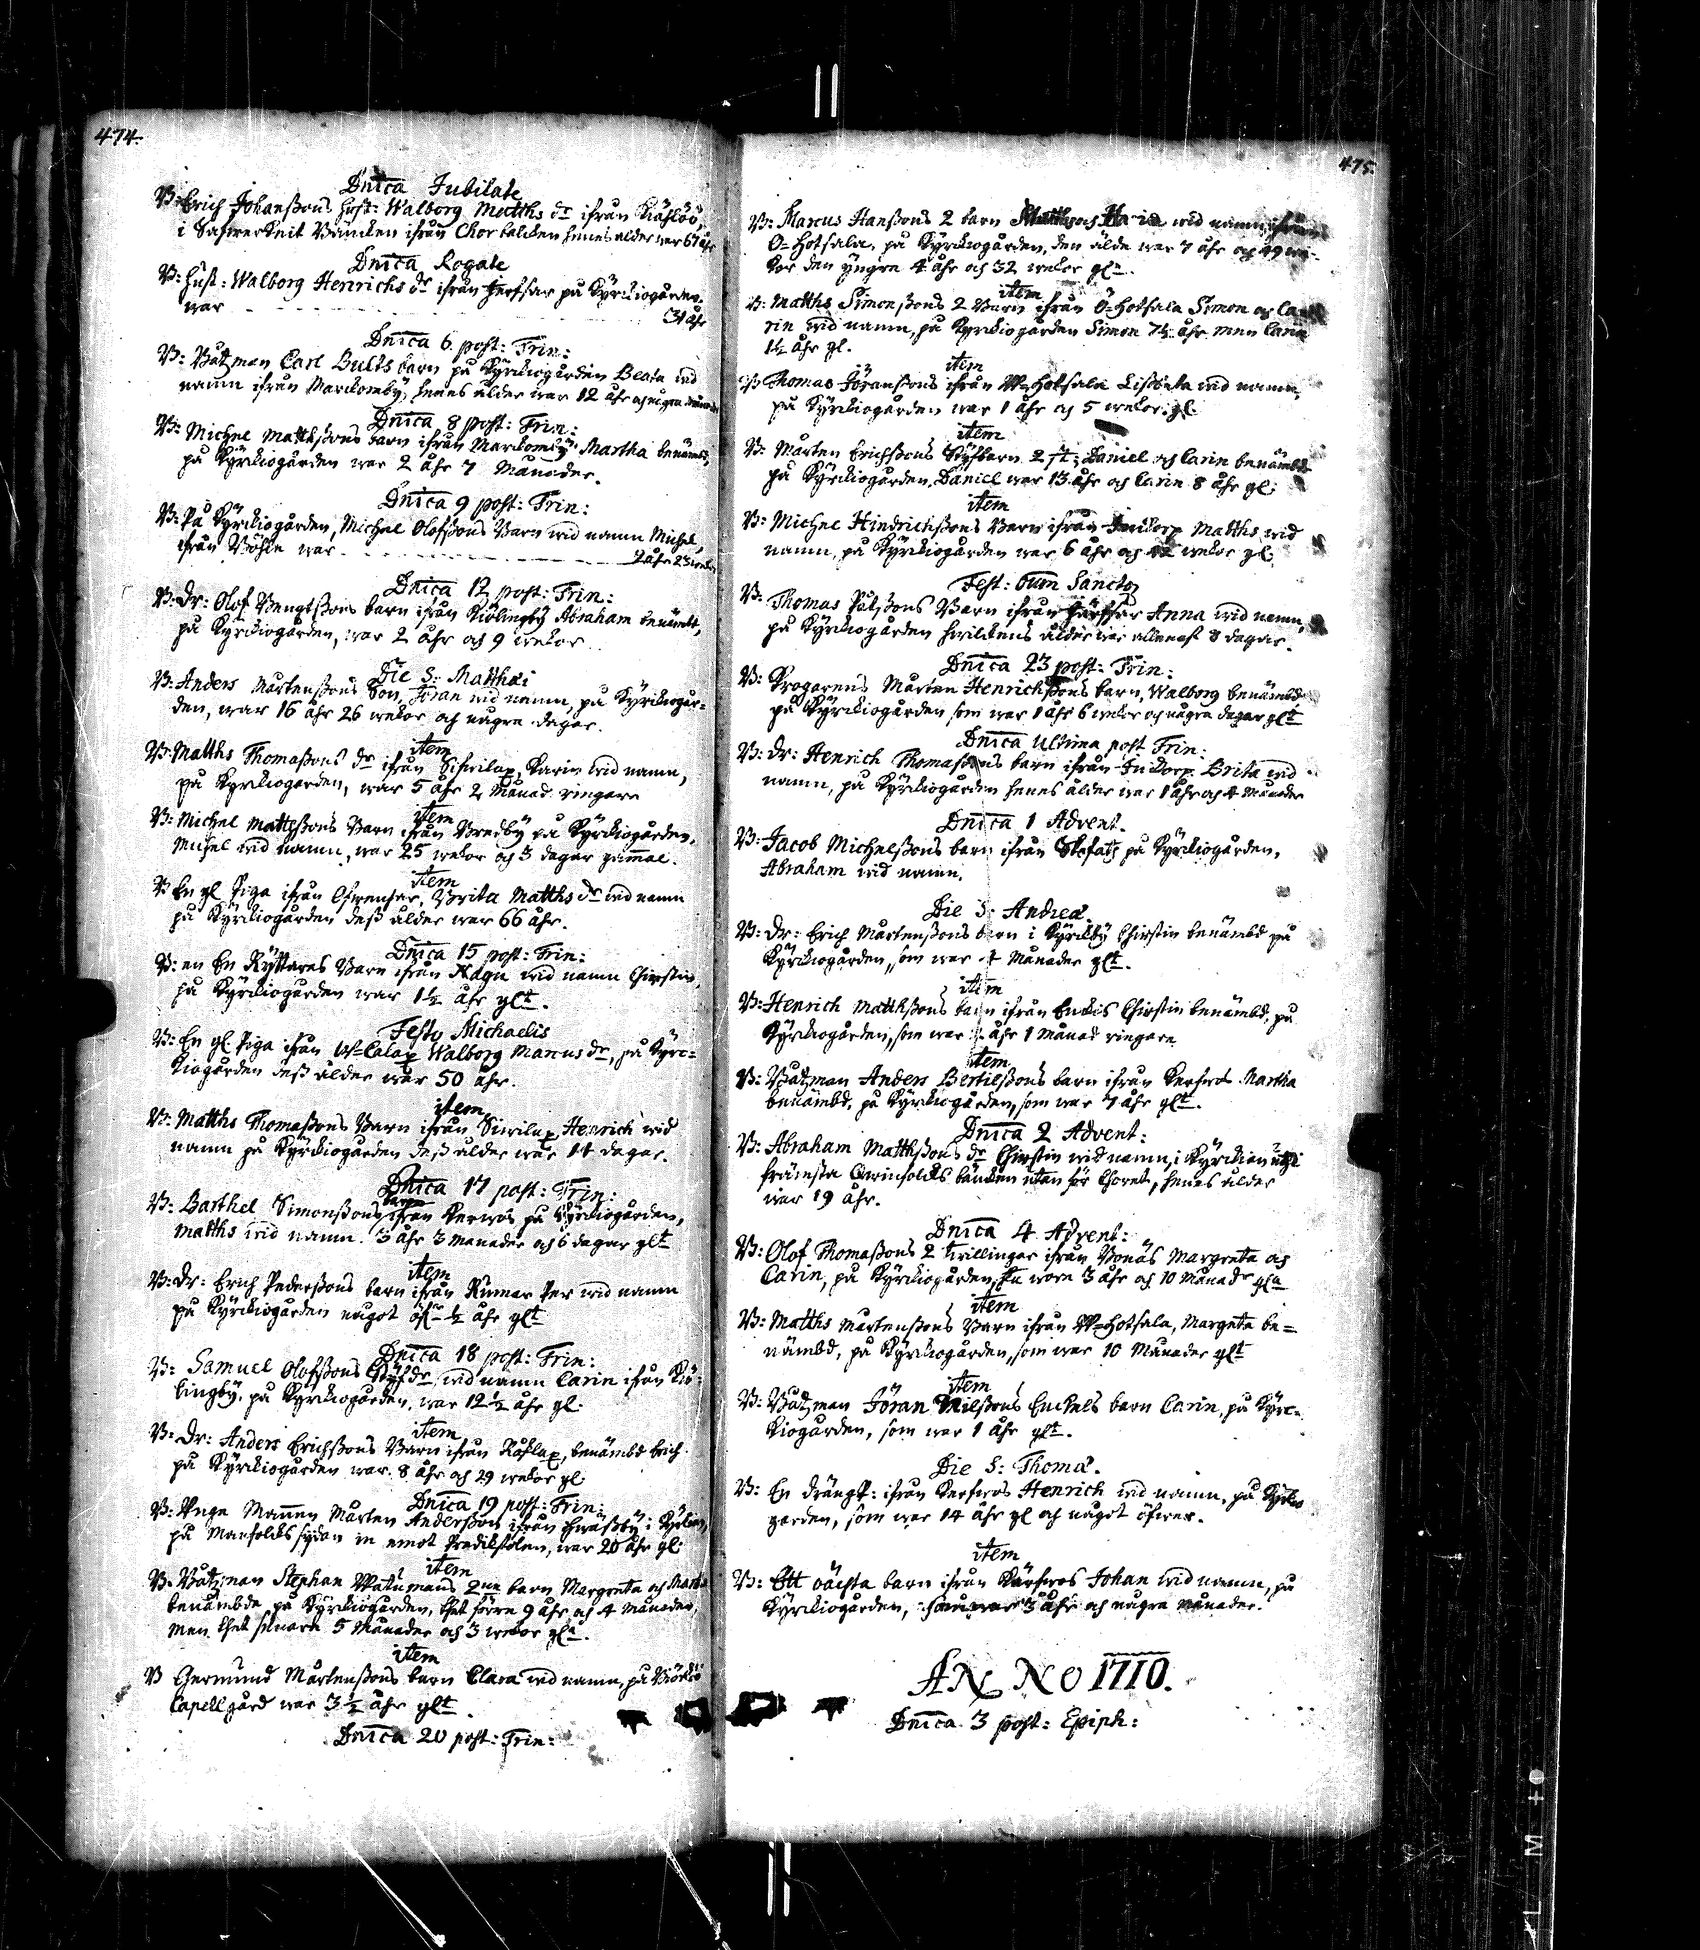 474.
Dnica Jubilate
B: Erich Johanßons hust: Walborg Matths dr ifrån
i Bäncken ifrån Chor balcken hennes ålder war 67 åhr
Dnica Rogate
B: hust: Walborg Henrichs dr ifrån Jerfsar på Kyrkiogården
war 31 åhr
Dnica 6 post: Trin:
B: Båtzman Carl Bults barn på Kyrkiogården Beata wid
namn ifrån Marckomby, henes ålder war 12 åhr och några
Dnica 8 post: Trin:
B: Michel Matthßons barn ifrån Marckomby Martha benämbd,
på Kyrkiogården war 2 åhr 7 Månader.
Dnica 9 post: Trin:
B: På Kyrkiogården, Michel Olofßons Barn wid namn Michel,
ifrån Böhle war 2 åhr 23 wekor
Dnica 12 post: Trin:
B: Dr: Olof Bengtßons barn ifrån Kiölingby Abraham benämbt,
på Kyrkiogården, war 2 åhr och 9 wekor
Die S: Matthæi
B: Anders Mårtenßons Son, Jöran wid namn, på Kyrkiogår=
den, war 16 åhr 26 wekor och några dagar.
item
B: Matths Thomaßons dr ifrån Karin wid namn,
på Kyrkiogården, war 5 åhr 2 Månad ringare
item
B: Michel Mattßons Barn ifrån Bredby på Kyrkiogården,
Michel wid namn, war 25 wekor och 3 dagar gammal.
item
B: En gl Piga ifrån Brita Matths dr wid namn
på Kyrkiogården deß ålder war 66 åhr.
Dnica 15 post: Trin:
B: en En Ryttares Barn ifrån wid namn Chirstin,
på Kyrkiogården war 1½ åhr glt.
Festo Michaelis
B: En gl. Piga ifrån W=Calax Walborg Marcus dr, på Kyrc=
kiogården deß ålder war 50 åhr.
item
B: Matths Thomaßons Barn ifrån Henrich wid
namn på Kyrkiogården deß ålder war 14 dagar.
Dnica 17 post: Trin:
B: Barthel Simonßons barn ifrån på Kyrkiogården,
Matths wid namn. 3 åhr 3 Månader och 6 dagar glt
item
B: Dr: Erich Pederßons barn ifrån Rimar Per wid namn
på Kyrkiogården något öfr ½ åhr glt
Dnica 18 post: Trin:
B: Samuel Olofßons Styfdr, wid namn Carin ifrån Kiö=
lingby, på Kyrkiogården, war 12½ åhr gl:
item
B: Dr: Anders Erichßons Barn ifrån benämbd Erich
på Kyrkiogården war 8 åhr och 29 wekor gl:
Dnica 19 post: Trin:
B: Unge Mannen Mårten Anderßon ifrån i Kyrkian,
på Manfolcks sydan in emot Predikstolen, war 20 åhr gl:
item
B: Båtzman Stephan Watumans 2ne barn Margreta och Marta
benämbda på Kyrkiogården, thet förre 9 åhr och 4 Månader,
men thet senare 5 Månader och 3 wekor gla.
item
B Germund Mårtenßons barn Clara wid namn, på Biörkö
Capellgård war 3½ åhr glt.
Dnica 20 post: Trin:
475.
B: Marcus Hanßons 2 barn wid namn ifrån
Ö=Hotsala, på Kyrkiogården, den älde war 7 åhr och 49 we=
kor den yngre 4 åhr och 32 wekor gla.
item
B: Matths Simonßons 2 Barn ifrån Ö=Hotsala Simon och Ca=
rin wid namn, på Kyrkiogården Simon 7½ åhr men Carin
1½ åhr gl.
item
B: Thomas Jöranßons ifrån W=Hotsala Lisbeta wid namn,
på Kyrkiogården war 1 åhr och 5 wekor gl
item
B: Mårten Erichßons Styfbarn 2 st: Daniel och Carin benämbde
på Kyrkiogården, Daniel war 13 åhr och Carin 8 åhr gl:
item
B: Michel Hindrichßons Barn ifrån Matths wid
namn, på Kyrkiogården war 6 åhr och wekor gl
Fest: Oum Sancto
B: Thomas Påtßons Barn ifrån Anna wid namn,
på Kyrkiogården hwilckens ålder war allenast 8 dagar.
Dnica 23 post: Trin:
B: Krogarens Mårten Henrichßons barn, Walborg benämbd
på Kyrkiogården som war 1 åhr 6 wekor och några dagar glt
Dnica Ultima post Trin:
B: Dr: Henrich Thomaßons barn ifrån Brita wid
namn, på Kyrkiogården henes ålder war 1 åhr och 4 Månader
Dnica 1 Advent.
B: Jacob Michelßons barn ifrån på Kyrkiogården,
Abraham wid namn.
Die S: Andreæ.
B: Dr: Erich Mårtenßons barn i Kyrkby Chirstin benämbd på
Kyrkiogården, som war 4 Månader glt.
item
B: Henrich Matthßons barn ifrån Chirstin benämbd, på
Kyrkiogården, som war åhr 1 Månad ringare
item
B: Båtzman Anders Bertilßons barn ifrån Martha
benämbd, på Kyrkiogården, som war 7 åhr glt.
Dnica 2 Advent:
B: Abraham Matthßons dr Chirstin wid namn, i Kyrkian uthi
främsta Qwinfolcks bäncken utan för Choret, henes ålder
war 19 åhr.
Dnica 4 Advent:
B: Olof Thomaßons 2 twillingar ifrån Bonäs Margreta och
Carin, på Kyrkiogården, woro 3 åhr och 10 Månadr gla
item
B: Matths Mårtenßons Barn ifrån W=Hotsala, Margeta be=
nämbd, på Kyrkiogården, som war 10 Månader glt
item
B: Båtzman Jöran Nilßons Enckels barn Carin, på Kyrc=
kiogården, som war 1 åhr glt.
Die S: Thomæ.
B: En drängp: ifrån Henrich wid namn, på Kyrkio
garden, som war 14 åhr gl och något öfwer.
item
B: Ett oächta barn ifrån Johan wid namn, på
Kyrkiogården, som war 3 åhr och några månader.
ANNO 1710.
Dnica 3 post: Epiph: